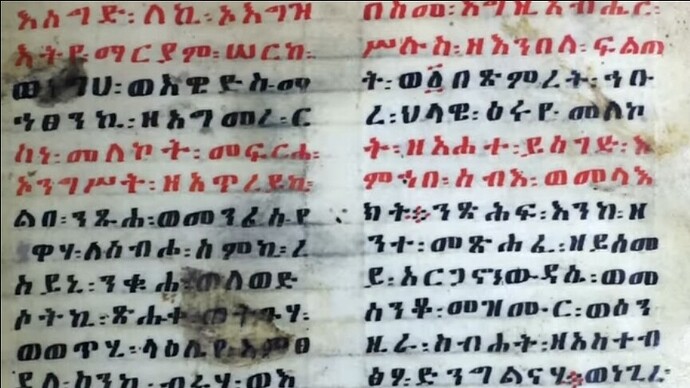 እሰግድ፡ለኪ፡ኦእግዝ
እትየ፡ማርያም፡ሠርከ፡
ወእዊድ፡ስመ
ኀፀንኪ፡ዘእግመረ፡ር
ስነ፡መለኮት፡መፍርሐ፡
ኦንግሥት፡ዘአጥረይኪ፡
ልበ፡ንጹሐ፡ወመንፈሰ፡የ
ዋሃ፡ለስብሐ፡ስምኪ፡ረ
ሰይኒ፡ንቁሐ፡ወለወድ
ሶትኪ፡ጽሑተ፡ወትጉሃ፡
ወወጥሂ፡ላዕሌየ፡እምፀ
ደለ፡ስንኪ፡ብሩሃ፡ወእ
በስመ፡እግዚአብሔር፡
ሥሉስ፡ዘእንበለ፡ፍልጠ
ት፡ወ፩በጽምረት፡ኅቡ
ረ፡ህላዌ፡ዕሩየ፡መለኮ
ት፡ዘአሐተ፡ይሰገድ፡እ
ምኀበ፡ሰብእ፡ወመላእ
ክት፨ንጽሕፍ፡እንከ፡ዘ
ንተ፡መጽሐፈ፡ዘይሰመ
ይ፡አርጋኖነ፡ውዳሴ፡ወመ
ሰንቆ፡መዝሙር፡ወዕን
ዚራ፡ስብሐት፡ዘአስተብ
ፅፆ፡ድንግልናሃ፨ወነጊረ፡